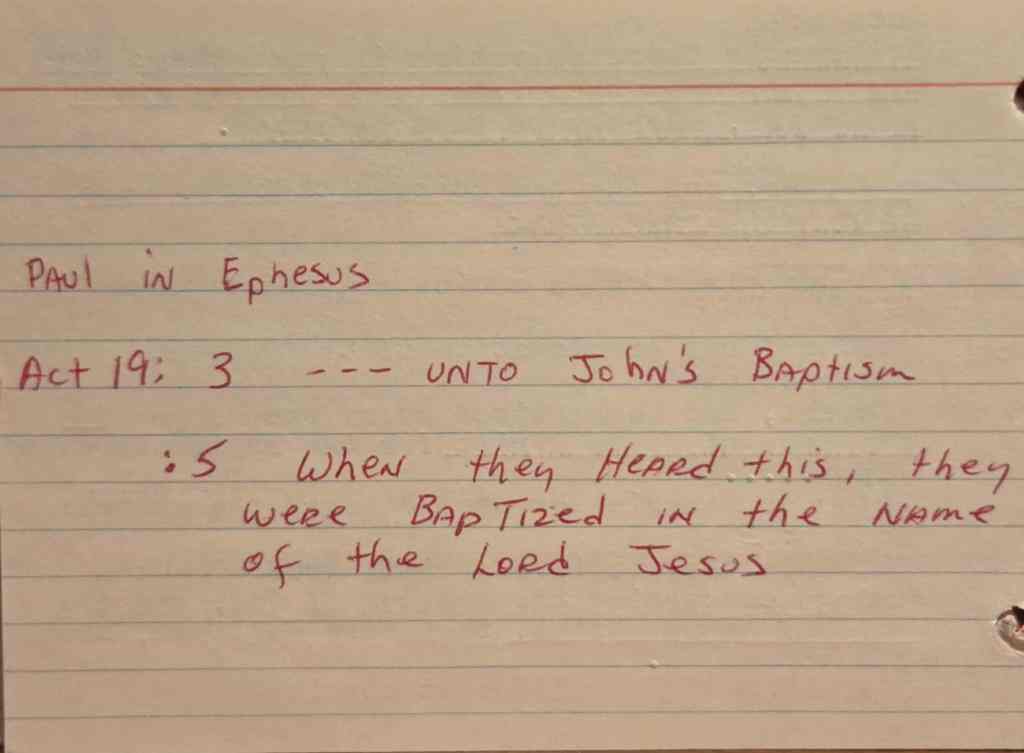 PAUL IN EphesUS
Act 19: 3 --- UNTO JohN's BAptism
:5 WheN they HeARd this, they
weRe BApTized iN the NAme
of the LoRd Jesus